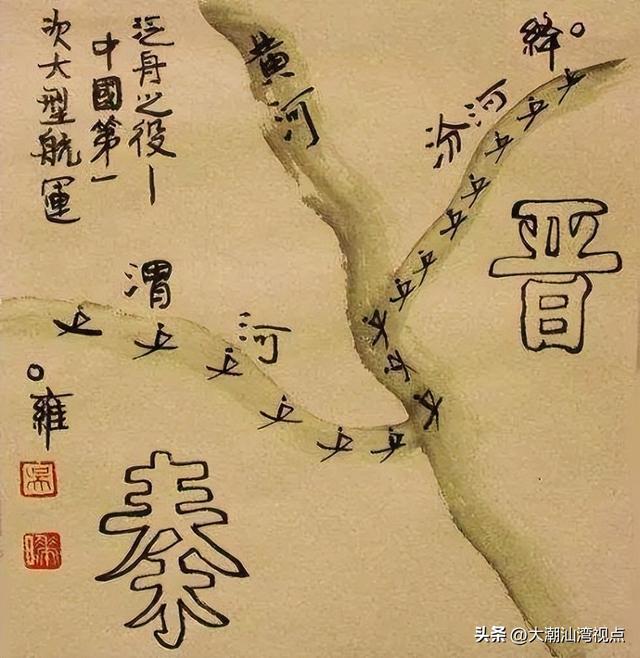 泛舟之役—
中國第一
次大型航運
黄河
絳
汾河
晋
渭河
雍
秦
头条 @大潮汕湾视点